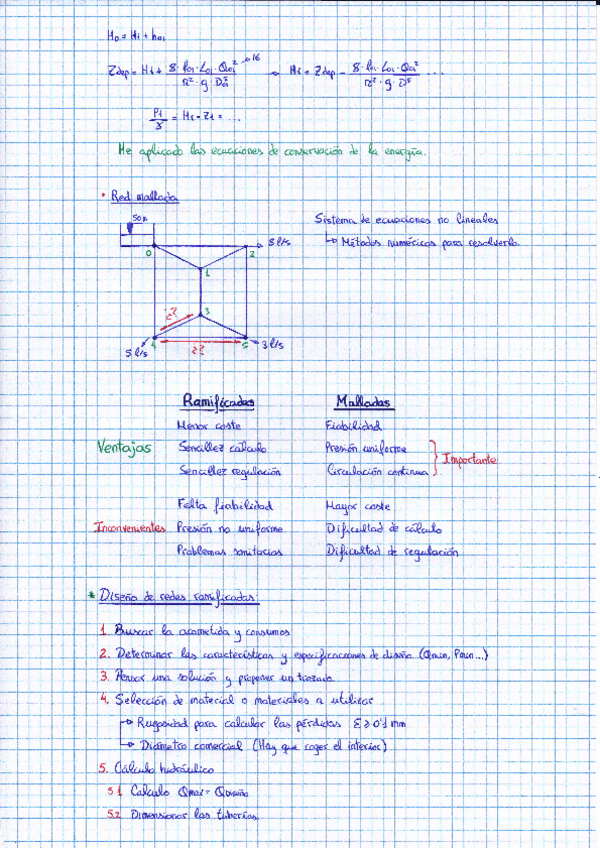 H₀ = H₁ + h₀₁
Zdep = H₁ + 8·f₀₁·L₀₁·Q₀₁² / π²·g·D₀₁⁵ → H₁ = Zdep - 8·f₀₁·L₀₁·Q₀₁² / π²·g·D⁵ ...
P₁/γ = H₁ - Z₁ = ...
He aplicado las ecuaciones de conservación de la energía.
• Red mallada
50m
Sistema de ecuaciones no lineales
↳ Métodos numéricos para resolverlo.
8 l/s
0
2
1
3
¿?
4
5
5 l/s
¿?
3 l/s
Ramificadas Malladas
Menor coste Fiabilidad
Ventajas Sencillez cálculo Presión uniforme
Sencillez regulación Circulación continua } Importante
Falta fiabilidad Mayor coste
Inconvenientes Presión no uniforme Dificultad de cálculo
Problemas sanitarios Dificultad de regulación
* Diseño de redes ramificadas:
1. Buscar la acometida y consumos
2. Determinar las características y especificaciones de diseño (Qmin, Pmin...)
3. Pensar una solución y proponer un trazado
4. Selección de material o materiales a utilizar
↳ Rugosidad para calcular las pérdidas Ɛ ≥ 0'1 mm
↳ Diámetro comercial (Hay que coger el interior)
5. Cálculo hidráulico
5.1 Calculo Qmax = Qdiseño
5.2 Dimensionar las tuberías